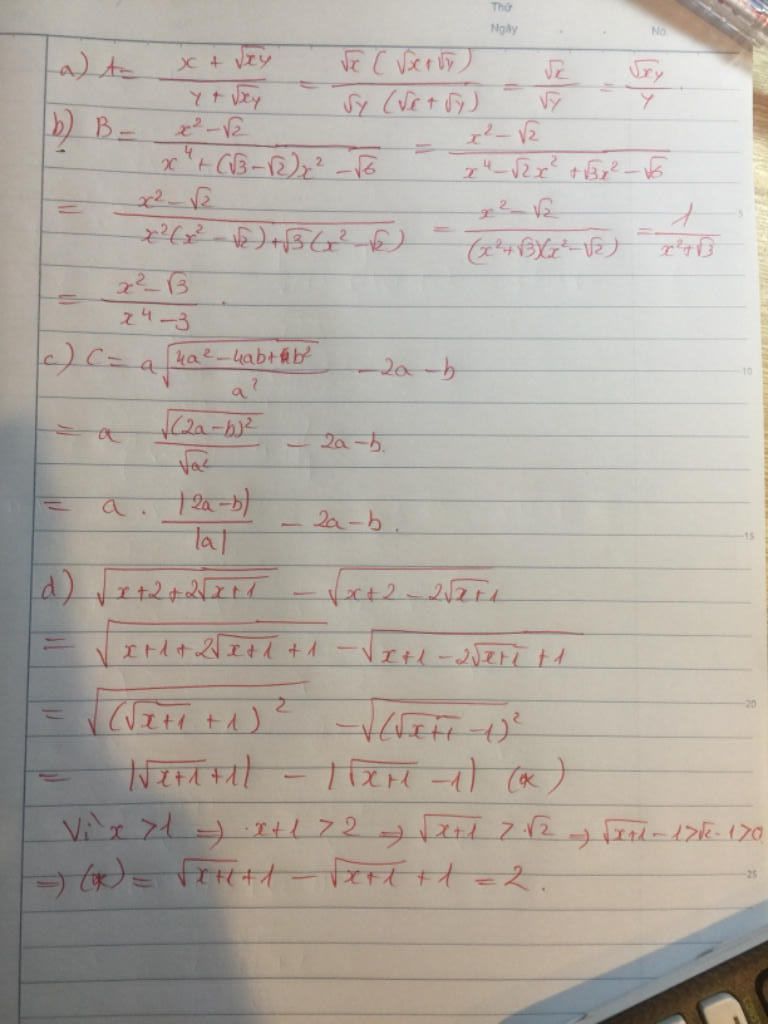 Thứ
Ngày . . No.
a) A = \frac{x + \sqrt{xy}}{y + \sqrt{xy}} = \frac{\sqrt{x}(\sqrt{x}+\sqrt{y})}{\sqrt{y}(\sqrt{x}+\sqrt{y})} = \frac{\sqrt{x}}{\sqrt{y}} = \frac{\sqrt{xy}}{y}.
b) B = \frac{x^2 - \sqrt{2}}{x^4 + (\sqrt{3}-\sqrt{2})x^2 - \sqrt{6}} = \frac{x^2 - \sqrt{2}}{x^4 - \sqrt{2}x^2 + \sqrt{3}x^2 - \sqrt{6}}
= \frac{x^2 - \sqrt{2}}{x^2(x^2 - \sqrt{2}) + \sqrt{3}(x^2 - \sqrt{2})} = \frac{x^2 - \sqrt{2}}{(x^2+\sqrt{3})(x^2-\sqrt{2})} = \frac{1}{x^2+\sqrt{3}}
5
= \frac{x^2 - \sqrt{3}}{x^4 - 3}.
c) C = a\sqrt{\frac{4a^2 - 4ab + b^2}{a^2}} - 2a - b
10
= a \frac{\sqrt{(2a-b)^2}}{\sqrt{a^2}} - 2a - b.
= a . \frac{|2a-b|}{|a|} - 2a - b.
15
d) \sqrt{x+2+2\sqrt{x+1}} - \sqrt{x+2-2\sqrt{x+1}}
= \sqrt{x+1+2\sqrt{x+1}+1} - \sqrt{x+1-2\sqrt{x+1}+1}
20
= \sqrt{(\sqrt{x+1}+1)^2} - \sqrt{(\sqrt{x+1}-1)^2}
= |\sqrt{x+1}+1| - |\sqrt{x+1}-1| (*)
Vì x > 1 ⇒ x+1 > 2 ⇒ \sqrt{x+1} > \sqrt{2} ⇒ \sqrt{x+1} - 1 > \sqrt{2} - 1 > 0
⇒ (*) = \sqrt{x+1}+1 - \sqrt{x+1}+1 = 2.
25